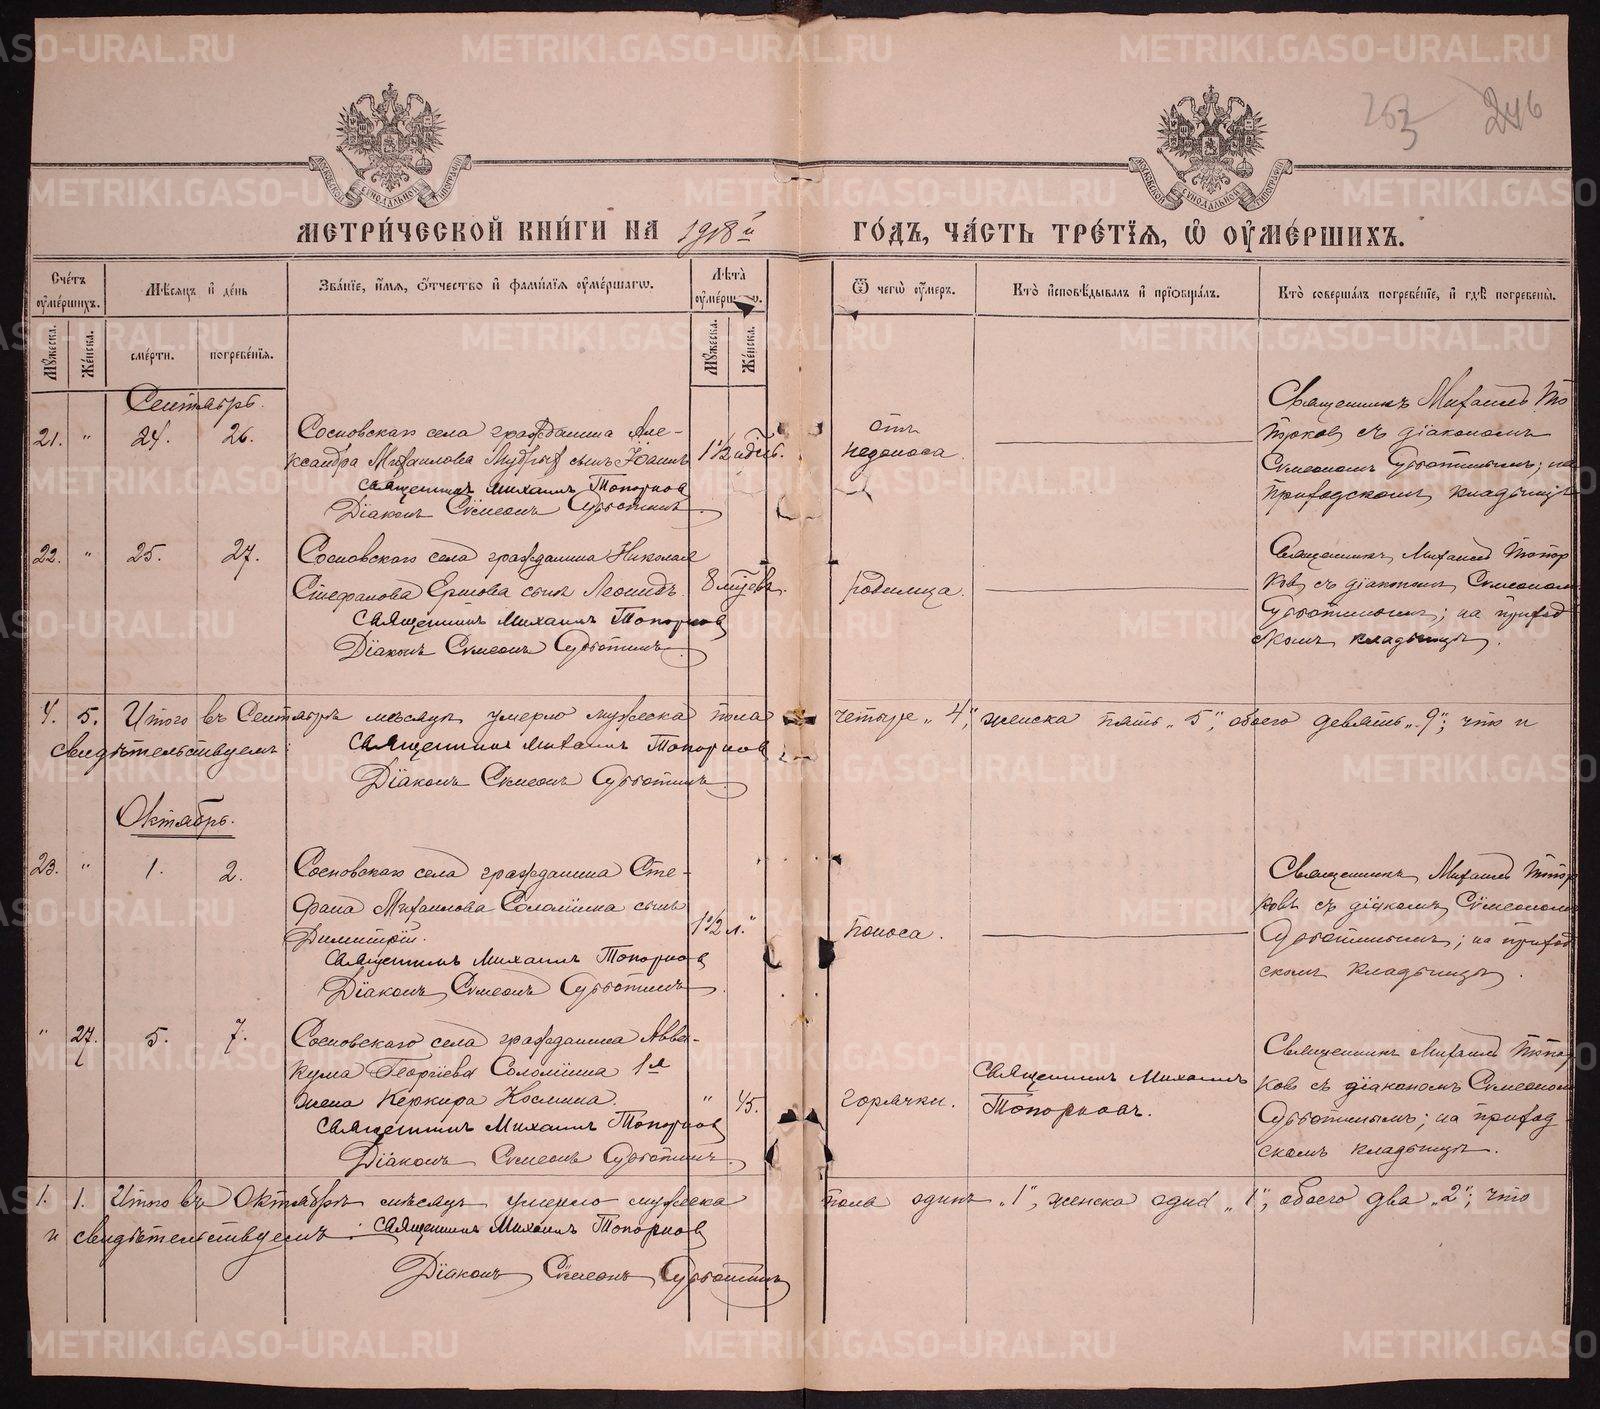 253 246
МЕТРИ́ЧЕСКОЙ КНИ́ГИ НА 1918й ГО́ДЪ, ЧА́СТЬ ТРЕ́ТІѦ, Ѡ ОУМЕ́РШИХЪ.
Сче́тъ оумéршихъ.
Мѣ́сяцъ и де́нь
Зва́ніе, и́мя, о́тчество и фами́лія оумéршагѡ.
Лѣта̀ оумéршагѡ.
Ѿ чегѡ̀ оу́меръ.
Кто̀ исповѣ́дывалъ и прїѡбща́лъ.
Кто̀ соверша́лъ погребе́нїе, и гдѣ̀ погребены̀.
Му́жеска.
Же́нска.
сме́рти.
погребе́нїя.
Му́жеска.
Же́нска.
Сентябрь.
21. " 24. 26.
Сосновскаго села гражданина Але-
ксандра Михаилова Мудрых сынъ Іоаннъ
Священникъ Михаилъ Топорков
Діаконъ Сѵмеонъ Субботинъ
1½ ндѣл.
отъ
недоноса.
Священникъ Михаилъ То
порков съ діакономъ
Сѵмеономъ Субботинымъ; на
приходскомъ кладбищѣ
22. " 25. 27.
Сосновскаго села гражданина Николая
Стефанова Ершова сынъ Леонидъ.
Священникъ Михаилъ Топорков
Діаконъ Сѵмеонъ Субботинъ
8 мѣсцевъ.
родимца.
Священникъ Михаилъ Топор
ков съ діакономъ Сѵмеоном
Субботинымъ; на приход
скомъ кладбищѣ.
4. 5. Итого въ Сентябрѣ мѣсяцѣ умерло мужеска пола четыре „4", женска пять „5", обоего девять „9"; что и
свидѣтельствуемъ:
Священникъ Михаилъ Топорков
Діаконъ Сѵмеонъ Субботинъ
Октябрь.
23. " 1. 2.
Сосновскаго села гражданина Сте-
фана Михаилова Соломина сынъ
Димитрій.
Священникъ Михаилъ Топорков
Діаконъ Сѵмеонъ Субботинъ
1½ л. "
поноса.
Священникъ Михаилъ Топор
ковъ съ діакономъ Сѵмеоном
Субботинымъ; на приход
скомъ кладбищѣ.
" 27. 5. 7.
Сосновскаго села гражданина Авва-
кума Георгіева Соломина 1я
жена Керкира Космина.
Священникъ Михаилъ Топорков
Діаконъ Сѵмеонъ Субботинъ
" 45.
горячки.
Священникъ Михаилъ
Топорковъ.
Священникъ Михаилъ Топор
ков съ діакономъ Сѵмеоном
Субботинымъ; на приход
скомъ кладбищѣ.
1. 1. Итого въ Октябрѣ мѣсяцѣ умерло мужеска пола одинъ „1", женска одна „1", обоего два „2"; что
и свидѣтельствуемъ: Священникъ Михаилъ Топорков
Діаконъ Сѵмеонъ Субботинъ
METRIKI.GASO-URAL.RU